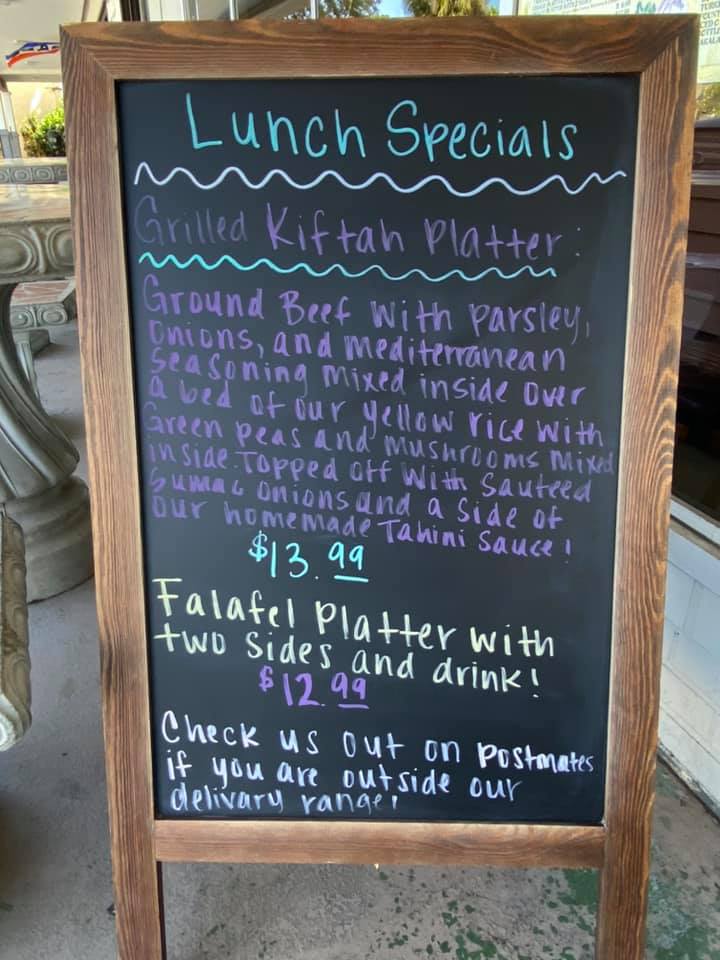 Lunch Specials
Grilled Kiftah Platter:
Ground Beef with parsley,
onions, and mediterranean
seasoning mixed inside over
a bed of our yellow rice with
Green peas and mushrooms mixed
inside. Topped off with sauteed
sumac onions and a side of
our homemade Tahini sauce!
$13.99
Falafel Platter with
two sides and drink!
$12.99
Check us out on Postmates
if you are outside our
delivary range!